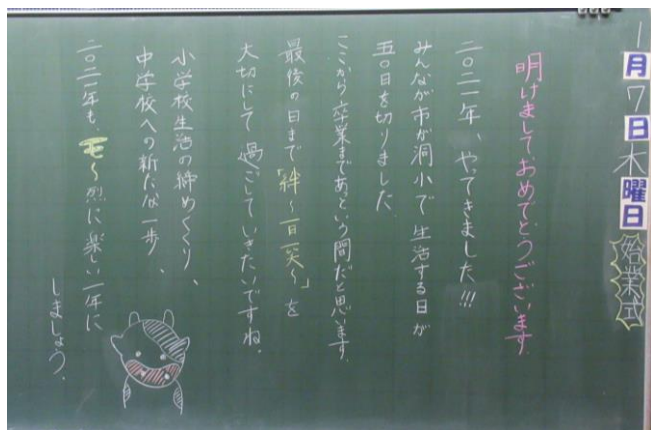 1月7日木曜日 始業式
明けましておめでとうございます
二〇二一年、やってきました!!!
みんなが市が洞小で生活する日が
五〇日を切りました。
ここから卒業まであという間だと思います。
最後の日まで「絆〜一日一笑〜」を
大切にして過ごしていきたいですね。
小学校生活の締めくくり、
中学校への新たな一歩、
二〇二一年も、モ〜烈に楽しい一年に
しましょう。